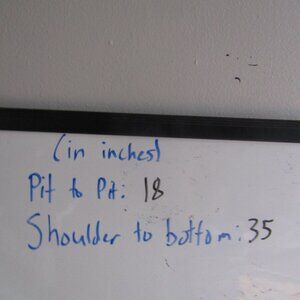 (in inches)
Pit to Pit: 18
Shoulder to bottom: 35